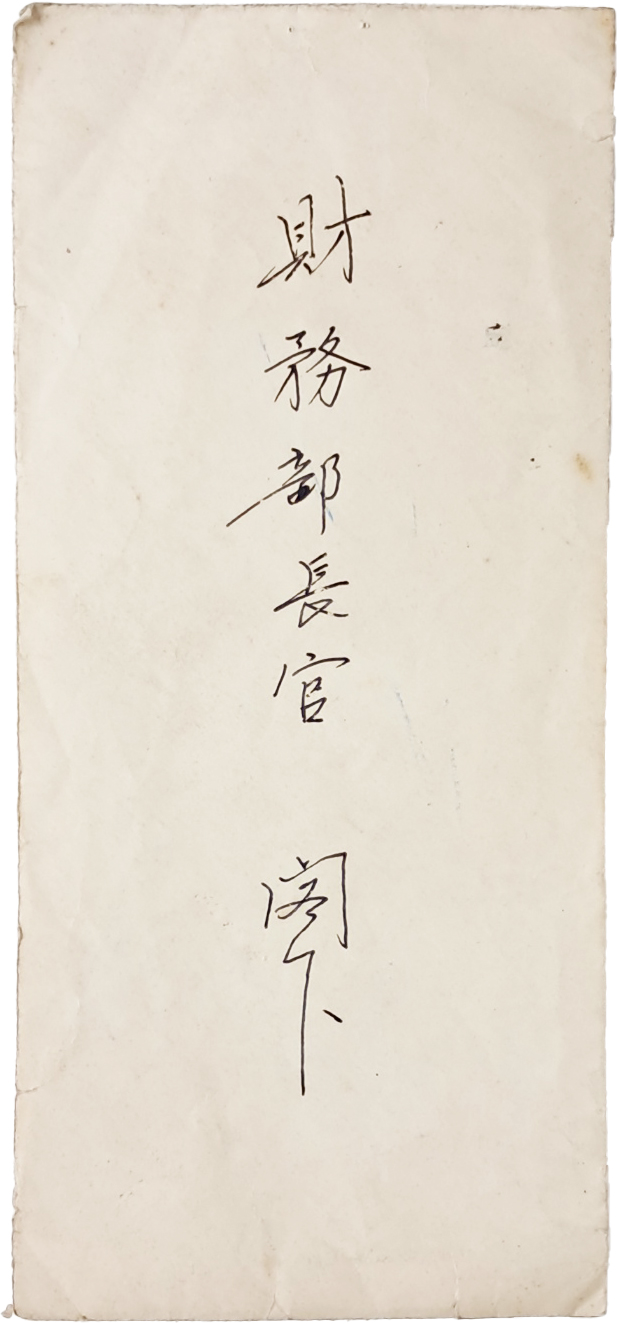 財務部長官 閣下